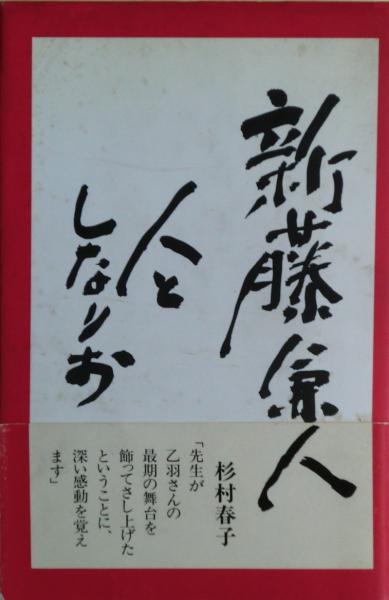 新藤兼人
人と
しなりお
杉村春子
「先生が
乙羽さんの
最期の舞台を
飾ってさし上げた
ということに、
深い感動を覚え
ます」